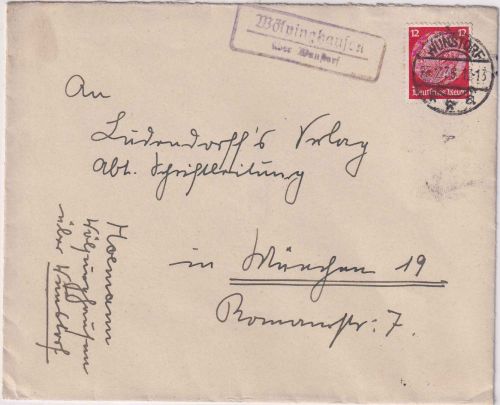 Wölpinghausen
über Wunstorf
12 12
Deutsches Reich
WUNSTORF
An
Ludendorff's Verlag
Abt. Schriftleitung
in München 19
Romanstr: 7.
Wölpinghausen
über Wunstorf